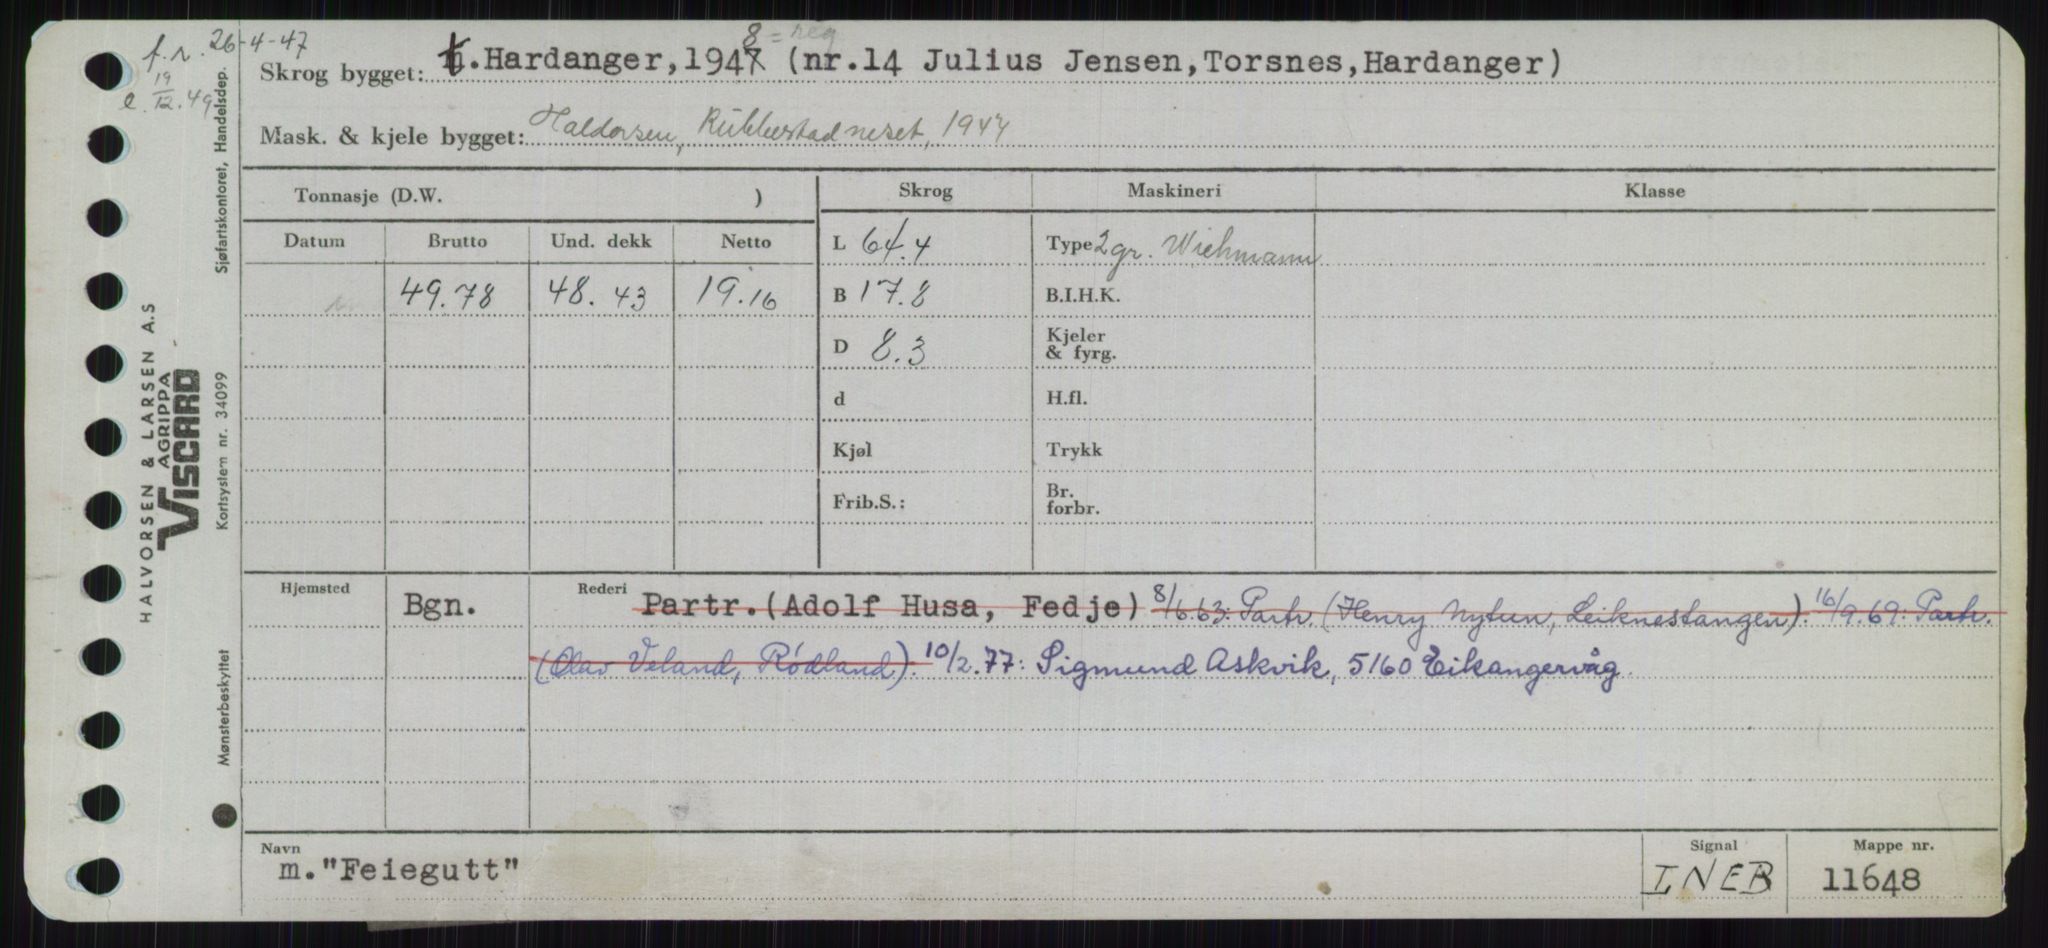 f.r. 26-4-47
e. 19/12.49
8 = reg
Skrog bygget: t.Hardanger,1947 (nr.14 Julius Jensen,Torsnes,Hardanger)
Mask. & kjele bygget: Haldorsen, Rubbestadneset, 1947
Tonnasje (D.W. )
Skrog
Maskineri
Klasse
Datum Brutto Und. dekk Netto
49.78 48.43 19.16
L 64.4
B 17.8
D 8.3
d
Kjøl
Frib.S.:
Type 2 gr. Wichmann
B.I.H.K.
Kjeler
& fyrg.
H.fl.
Trykk
Br.
forbr.
Hjemsted
Bgn.
Rederi
Partr.(Adolf Husa, Fedje) 8/6.63: Partr. (Henry Nytun, Leiknestangen). 16/9.69: Partr.
(Olav Veland, Rødland). 10/2.77: Sigmund Askvik, 5160 Eikangervåg.
Navn
m."Feiegutt"
Signal
LNEB
Mappe nr.
11648
HALVORSEN & LARSEN A.S
AGRIPPA
VISCARD
Sjøfartskontoret, Handelsdep.
Kortsystem nr. 34099
Mønsterbeskyttet